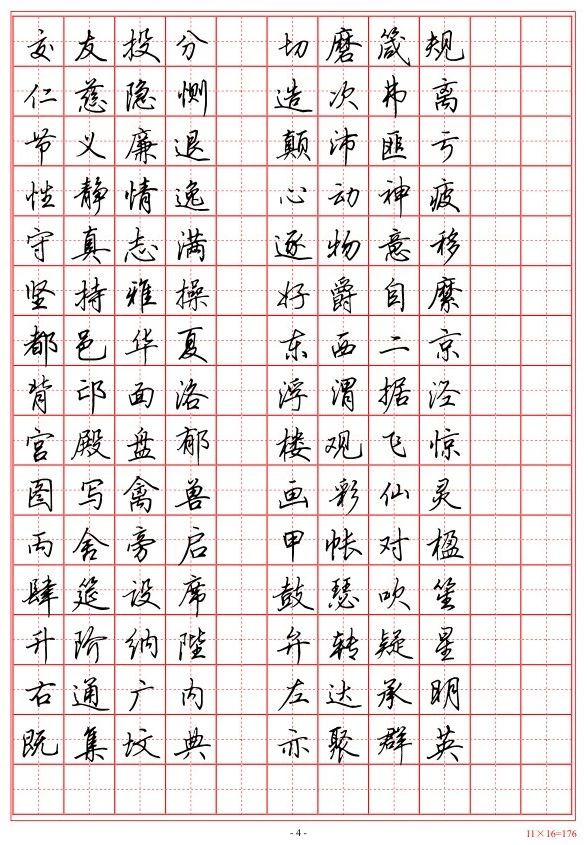 交友投分 切磨箴规
仁慈隐恻 造次弗离
节义廉退 颠沛匪亏
性静情逸 心动神疲
守真志满 逐物意移
坚持雅操 好爵自縻
都邑华夏 东西二京
背邙面洛 浮渭据泾
宫殿盘郁 楼观飞惊
图写禽兽 画彩仙灵
丙舍旁启 甲帐对楹
肆筵设席 鼓瑟吹笙
升阶纳陛 弁转疑星
右通广内 左达承明
既集坟典 亦聚群英
- 4 -
11×16=176